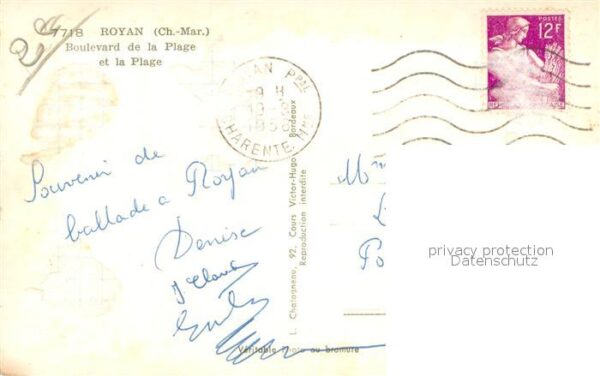 7718 ROYAN (Ch.-Mar.)
Boulevard de la Plage
et la Plage
ROYAN Ppal
CHARENTE Mme
POSTES
12F
Souvenir de
ballade a Royan
Denise
J. Claude
L. Chatagneau, 92, Cours Victor-Hugo, Bordeaux
Reproduction interdite
Véritable Photo au bromure
privacy protection
Datenschutz